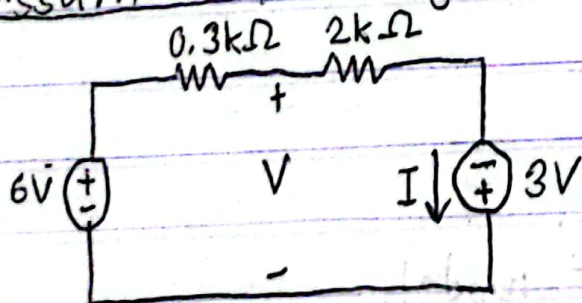 0.3kΩ 2kΩ
+
6V + - V I - + 3V
-